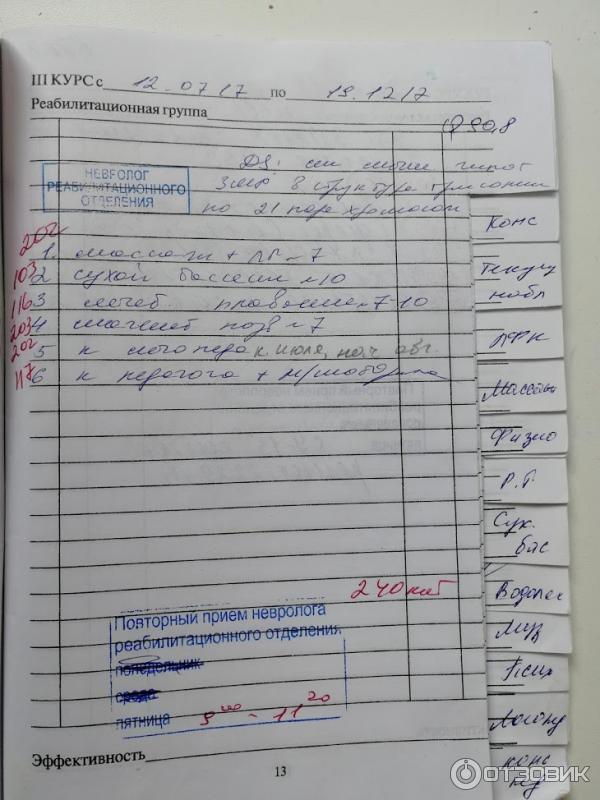 III КУРС с 12.07.17 по 19.12.17
Реабилитационная группа
Q90,8
НЕВРОЛОГ
РЕАБИЛИТАЦИОННОГО
ОТДЕЛЕНИЯ
DS:
в структуре трисомии
по 21 паре хромосом
202
1. массаж + ЛГ №7
103 2 сухой бассейн №10
116 3 лечеб. плавание №7-10
203 4 магнит позв №7
202 5 к логопеду к. июля, нач. авг.
117 6 к педагогу + м/моторика
240 каб
Повторный прием невролога
реабилитационного отделения
понедельник
среда
пятница 9 00 - 11 20
Эффективность
13
Конс
Текущ
набл
ЛФК
Массаж
Физио
Р.Т
Сух.
бас
Водолеч
Псих
Логопед
конс
ОТЗОВИК